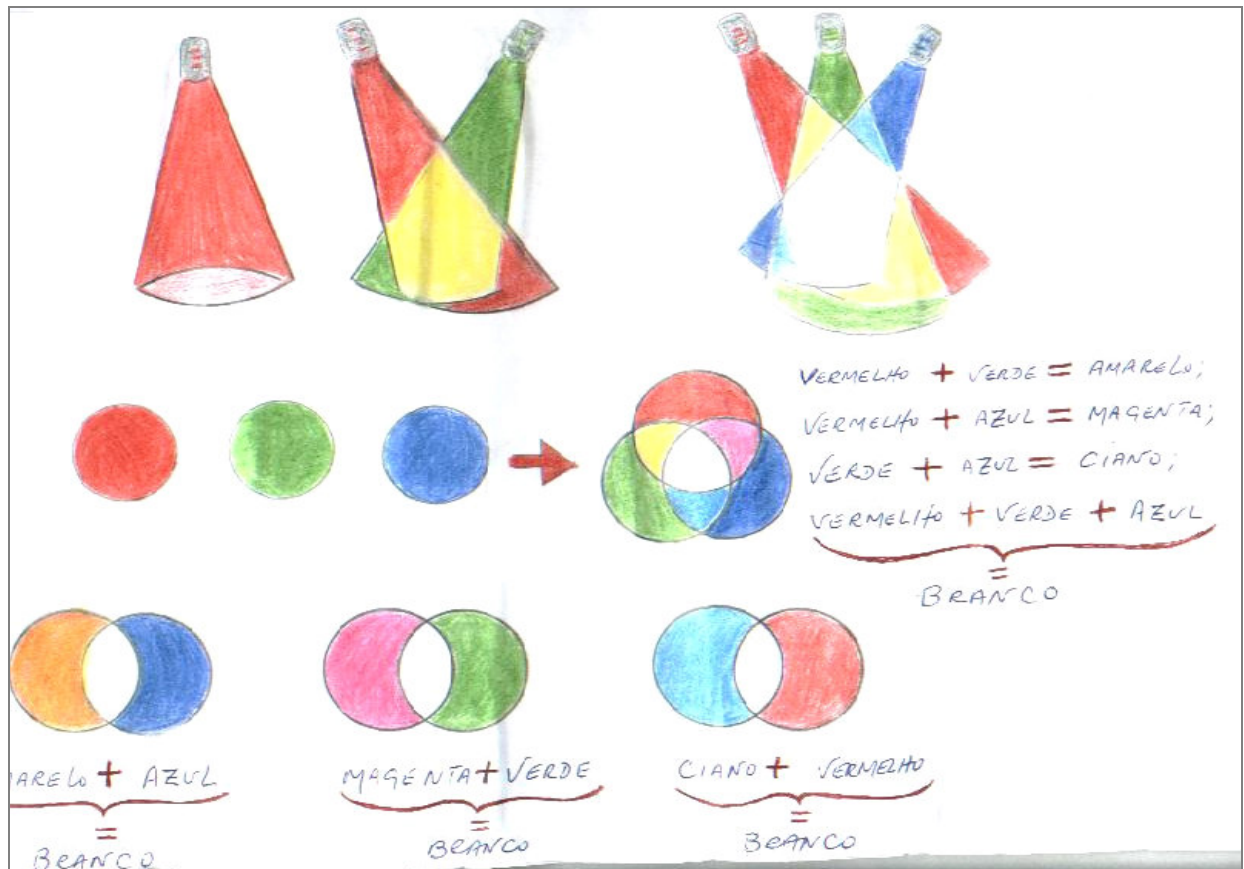 VERMELHO + VERDE = AMARELO;
VERMELHO + AZUL = MAGENTA;
VERDE + AZUL = CIANO;
VERMELHO + VERDE + AZUL
=
BRANCO
ARELO + AZUL
=
BRANCO
MAGENTA + VERDE
=
BRANCO
CIANO + VERMELHO
=
BRANCO